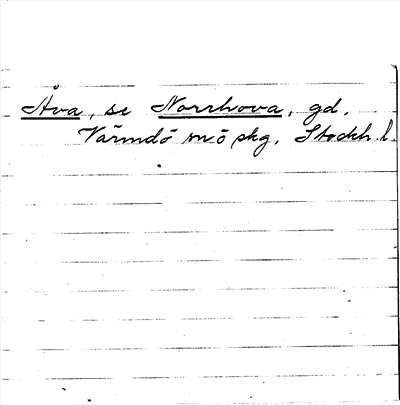 Åva, se Norrhova, gd,
Värmdö sn ö skg, Stockh. l.